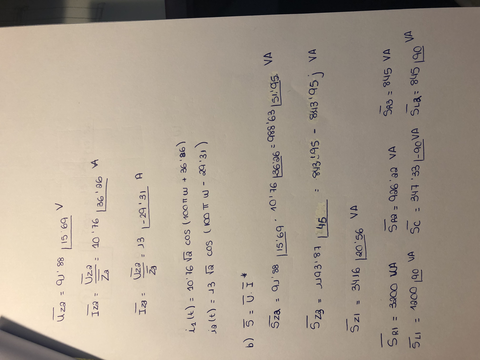 U̅z2 = 91'88 |15'69 V
I̅z2 = U̅z2/Z2 = 10'76 |36'26 VA
I̅z3 = U̅z2/Z3 = 13 |-29'31 A
i₂(t) = 10'76 √2 cos (100πw + 36'26)
i₃(t) = 13 √2 cos (100πw - 29'31)
b) S̅ = U̅ I̅*
S̅z2 = 91'88 |15'69 · 10'76 |36'26 = 988'63 |51'95 VA
S̅z3 = 1193'87 |45 : 843'95 - 843'95j VA
S̅z1 = 3416 |20'56 VA
S̅R1 = 3200 VA S̅R2 = 926'22 VA S̅R3 = 845 VA
S̅L1 = 1200 |90 VA S̅C = 347'33 |-90 VA S̅L2 = 845 |90 VA